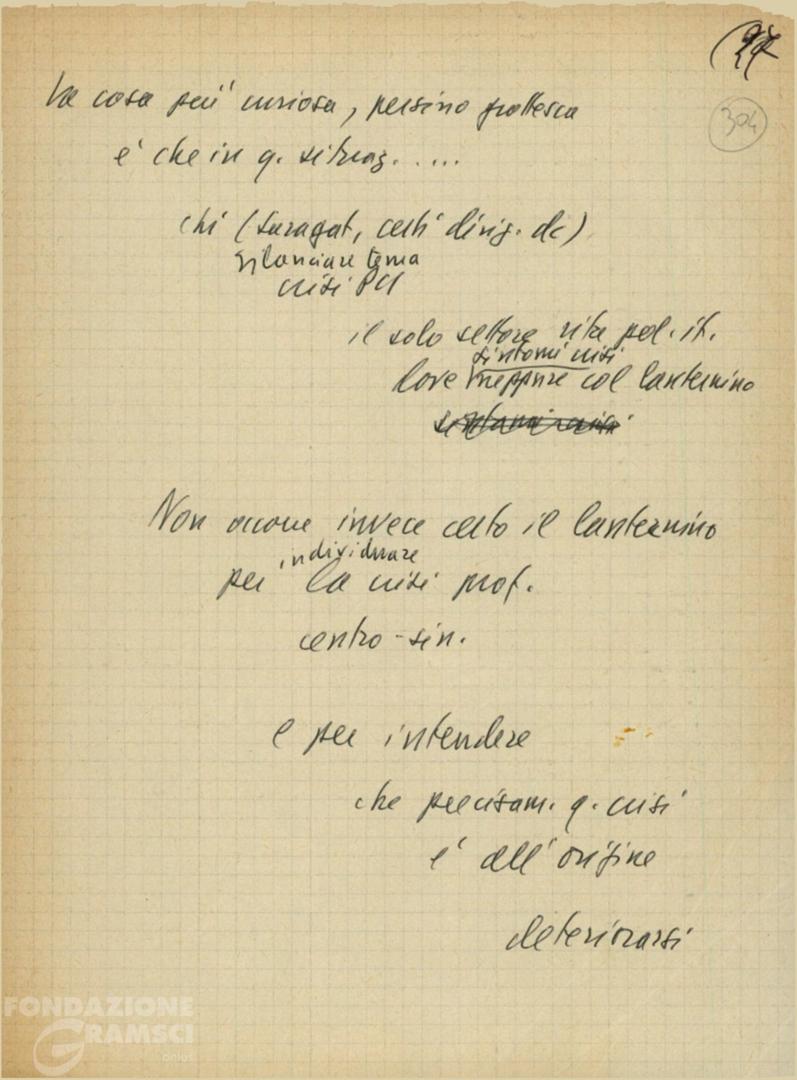 (27
304
La cosa più curiosa, persino grottesca
è che in q. situaz. ....
chi (Saragat, certi dirig. dc)
rilanciare tema
crisi PCI
il solo settore vita pol. it.
sintomi crisi
dove neppure col lanternino
Non occorre invece certo il lanternino
individuare
per la crisi prof.
centro-sin.
e per intendere
che precisam. q. crisi
è all'origine
deteriorarsi
FONDAZIONE
GRAMSCI
onlus